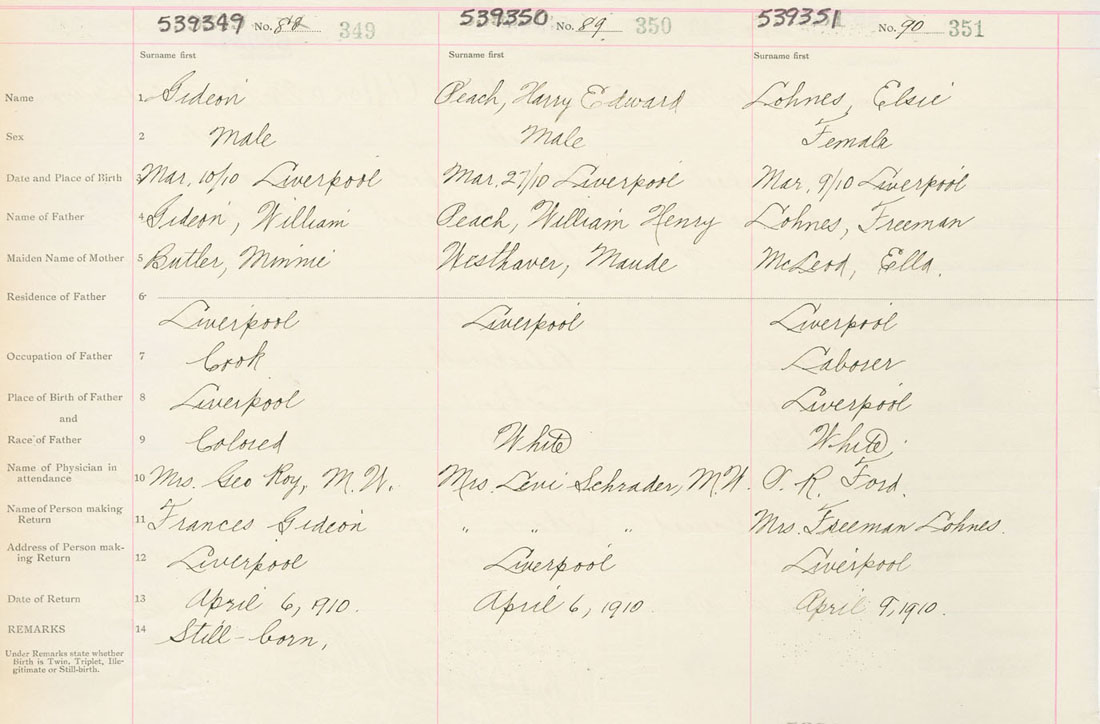 539349 No. 88 349 539350 No. 89 350 539351 No. 90 351
Surname first Surname first Surname first
Name 1 Gideon Peach, Harry Edward Lohnes, Elsie
Sex 2 Male Male Female
Date and Place of Birth 3 Mar. 10/10 Liverpool Mar. 27/10 Liverpool Mar. 9/10 Liverpool
Name of Father 4 Gideon, William Peach, William Henry Lohnes, Freeman
Maiden Name of Mother 5 Butler, Minnie Westhaver, Maude McLeod, Ella.
Residence of Father 6
Liverpool Liverpool Liverpool
Occupation of Father 7 Cook Laborer
Place of Birth of Father 8 Liverpool Liverpool
and
Race of Father 9 Colored White White.
Name of Physician in
attendance 10 Mrs. Geo Roy, M.W. Mrs. Levi Schrader, M.W. R. Ford.
Name of Person making
Return 11 Frances Gideon " " " Mrs. Freeman Lohnes.
Address of Person mak-
ing Return 12 Liverpool Liverpool Liverpool
Date of Return 13 April 6, 1910. April 6, 1910. April 9, 1910.
REMARKS 14 Still-born,
Under Remarks state whether
Birth is Twin, Triplet, Ille-
gitimate or Still-birth.